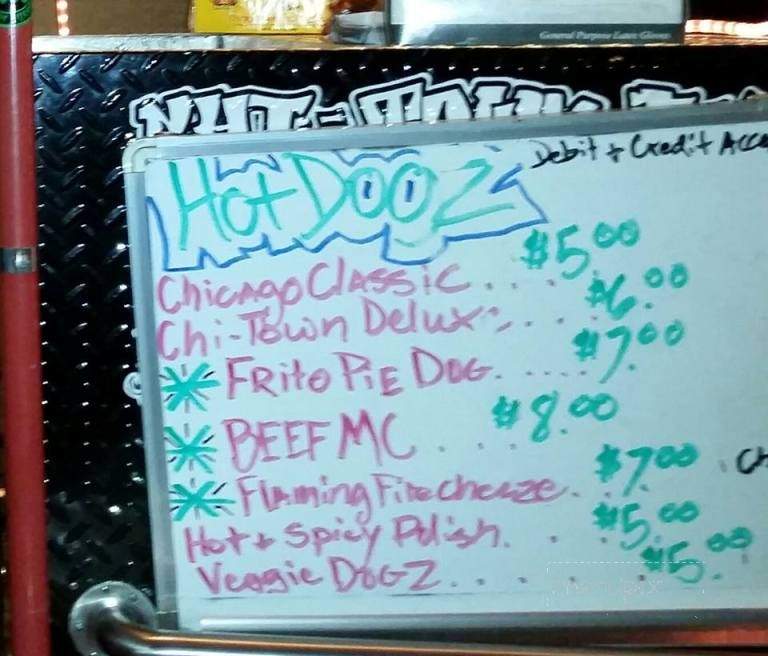 General Purpose Latex Gloves
Debit + Credit Acce
Hot DoGZ
Chicago Classic.... $5.00
Chi-Town Delux... $6.00
FRito PiE DoG..... $7.00
BEEF MC... $8.00
Flaming Firecheeze... $7.00
Hot + Spicy Polish... $5.00
Veggie DoGZ..... $5.00